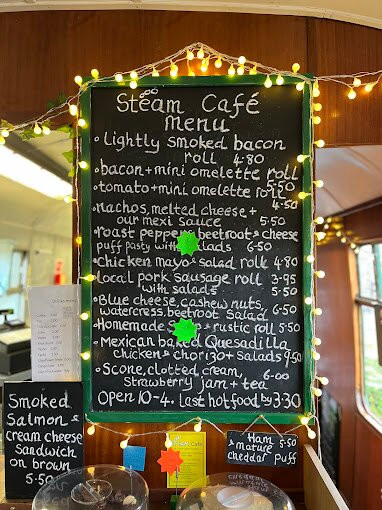 Steam Café
Menu
• Lightly smoked bacon
roll 4·80
• bacon + mini omelette roll
5·50
• tomato + mini omelette roll
4·50
• nachos, melted cheese +
our mexi sauce 5·50
• roast pepper, beetroot & cheese
puff pasty with salads 6-50
• Chicken mayo + salad roll 4·80
• Local pork sausage roll 3-95
with salads 5·50
• Blue cheese, cashew nuts,
watercress, beetroot salad 6·50
• Homemade + rustic roll 5·50
• Mexican baked Quesadilla
chicken & chorizo + salads 9·50
• Scone, clotted cream,
strawberry jam + tea 6-00
Open 10-4. Last hot food by 3·30
Smoked
Salmon &
cream cheese
Sandwich
on brown
5·50
Ham 5·50
& mature
cheddar puff